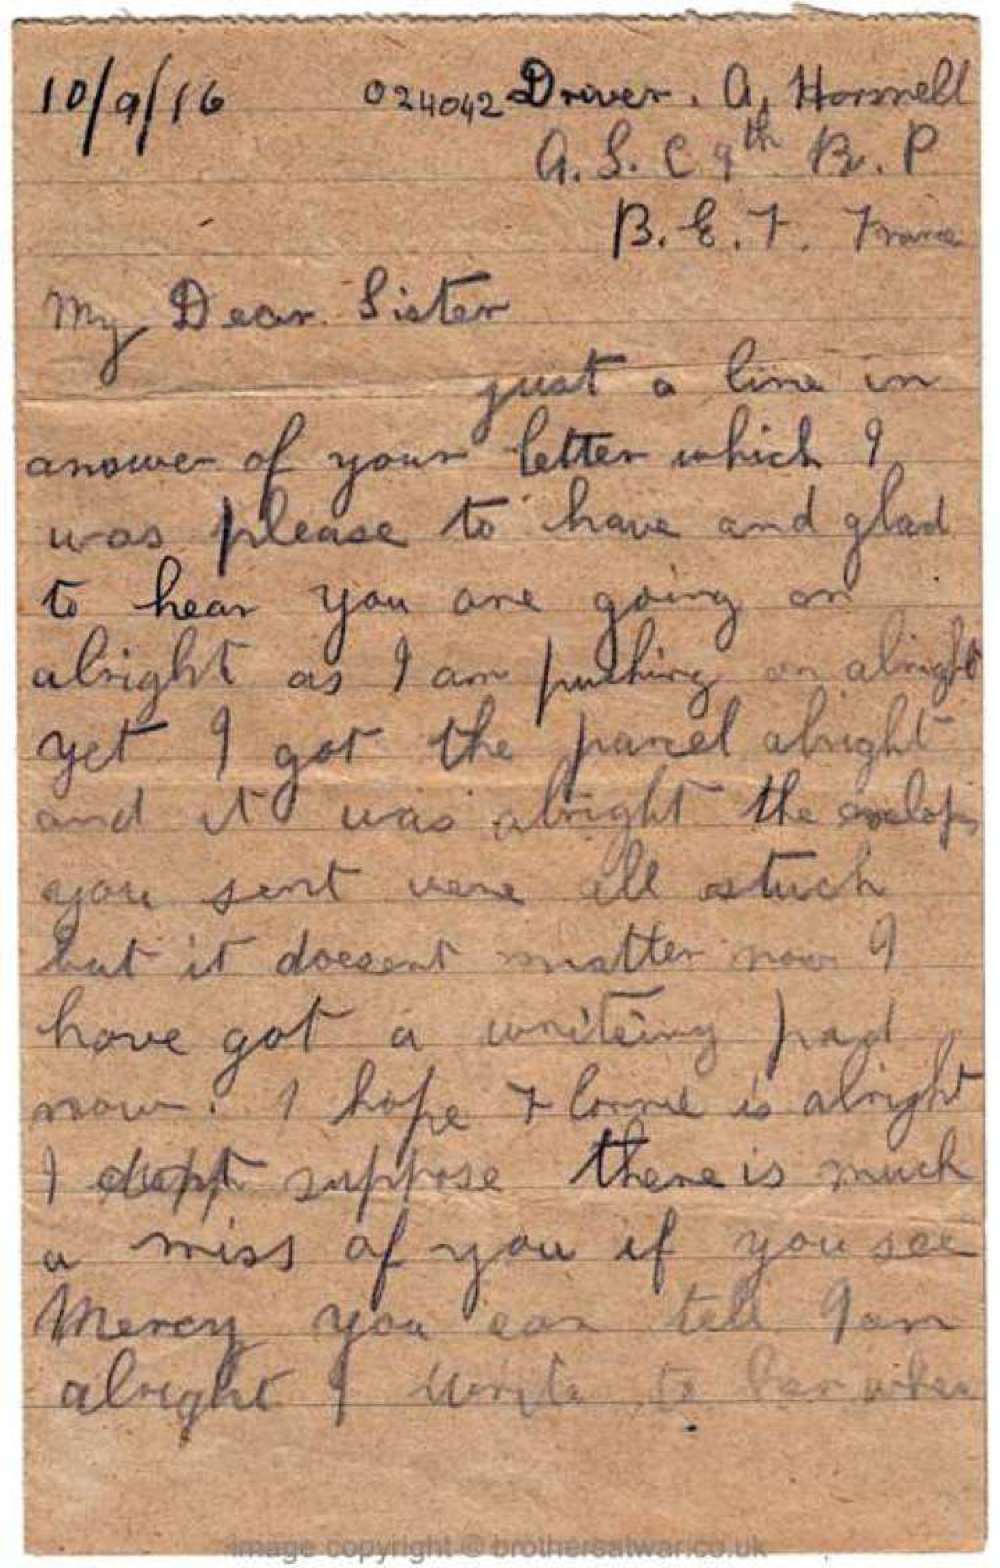 10/9/16 024042 Driver. A, Horsnell
A. S. C 9th B. P
B. E. F. France
My Dear Sister
just a line in
answer of your letter which I
was please to have and glad
to hear you are going on
alright as I am pushing on alright
yet I got the parcel alright
and it was alright the
you sent were all stuck
but it doesent matter now I
have got a writeing pad
now. I hope is alright
I suppose there is much
a miss of you if you see
Mercy you can tell I am
alright I write to her when
image copyright © brothersatwar.co.uk